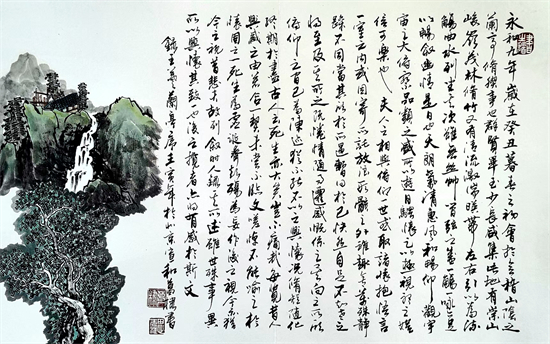 永和九年歲在癸丑暮春之初會於會稽山陰之
蘭亭脩禊事也群賢畢至少長咸集此地有崇山
峻嶺茂林脩竹又有清流激湍映帶左右引以為流
觴曲水列坐其次雖無絲竹管弦之盛一觴一詠亦足
以暢敘幽情是日也天朗氣清惠風和暢仰觀宇
宙之大俯察品類之盛所以遊目騁懷足以極視聽之娛
信可樂也夫人之相與俯仰一世或取諸懷抱悟言
一室之內或因寄所託放浪形骸之外雖趣舍萬殊靜
躁不同當其欣於所遇暫得於己快然自足不知老之
將至及其所之既倦情隨事遷感慨係之矣向之所欣
俯仰之間已為陳迹猶不能不以之興懷況脩短隨化
終期於盡古人云死生亦大矣豈不痛哉每覽昔人
興感之由若合一契未嘗不臨文嗟悼不能喻之於
懷固知一死生為虛誕齊彭殤為妄作後之視今亦猶
今之視昔悲夫故列敘時人錄其所述雖世殊事異
所以興懷其致一也後之覽者亦將有感於斯文
錄王羲之蘭亭序壬寅年於北京書